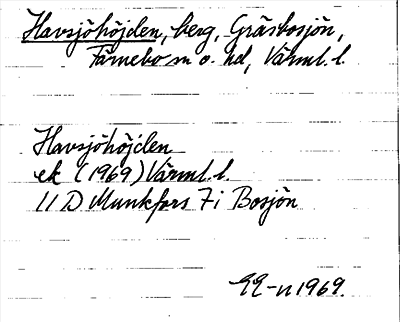 Havsjöhöjden, berg, Gräsbosjön,
Färnebo sn o. hd, Värml. l.
Havsjöhöjden
ek (1969) Värml. l.
11 D Munkfors 7i Bosjön
1969.